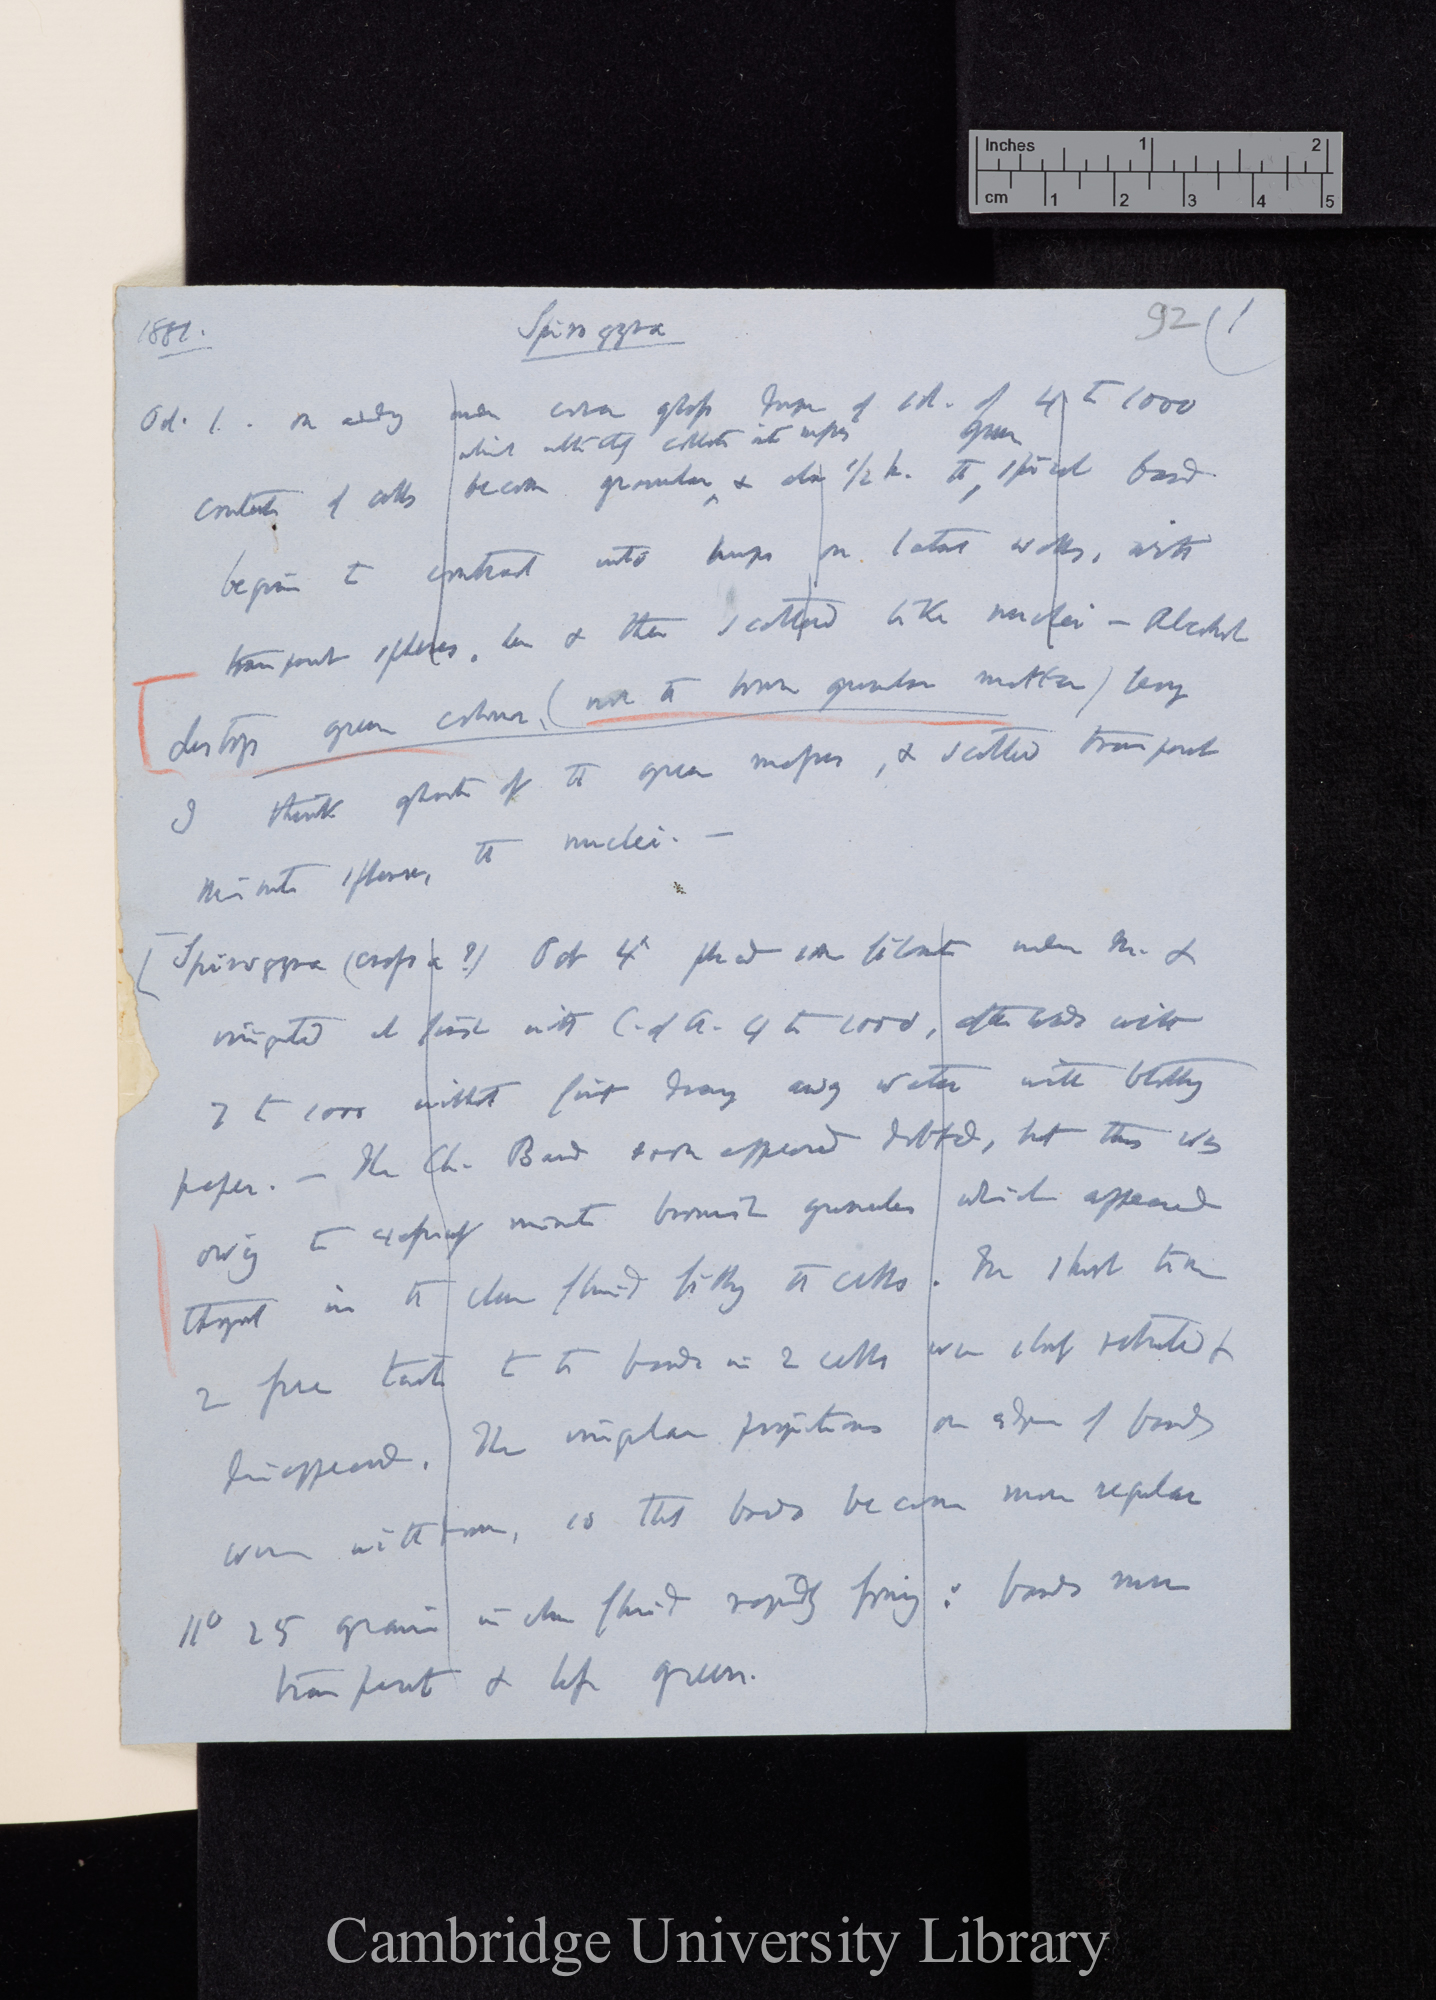 Inches 1 2
cm 1 2 3 4 5
1881. Spirogyra 92 (1
Oct. 1. on adding under cover glass drops of sol. of 4 to 1000
which ultimately collects into masses green
contents of cells become granular & after 1/2 h. the spiral band
begins to contract into lumps on lateral walls, with
transparent spheres, here & there scattered like nuclei — Alcohol
destroys green colour, (not the brown granular matter) leaving
I think ghosts of the green masses, & scattered transparent
minute spheres, the nuclei. —
[Spirogyra (crassa?) Oct 4th placed some filaments under mic. &
irrigated at first with C. of A. 4 to 1000, afterwards with
7 to 1000 without first drawing away water with blotting
paper. — The Ch. Band soon appeared dotted, but this was
owing to excessively minute brownish granules which appeared
throughout in the clear fluid filling the cells. In short time
2 free tails to the bands in 2 cells were slowly retracted &
disappeared. The irregular projections on edges of bands
were withdrawn, so that bands became more regular
11° 25 grains in clear fluid rapidly forming: bands more
transparent & less green.
Cambridge University Library